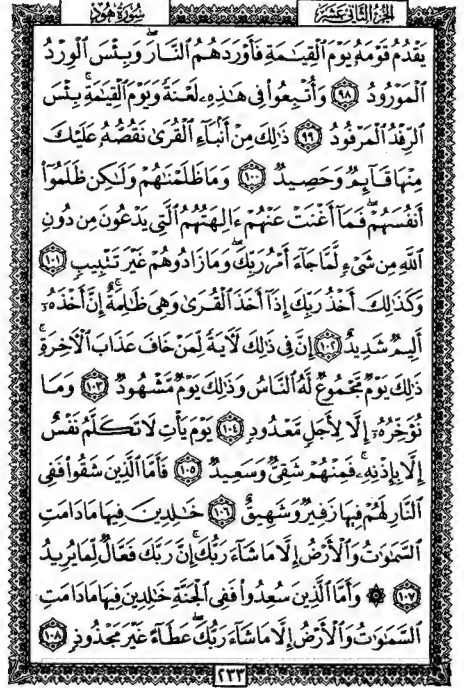 الجزء الثاني عشر سورة هود
يَقْدُمُ قَوْمَهُۥ يَوْمَ ٱلْقِيَٰمَةِ فَأَوْرَدَهُمُ ٱلنَّارَۖ وَبِئْسَ ٱلْوِرْدُ
ٱلْمَوْرُودُ ٩٨ وَأُتْبِعُوا۟ فِى هَٰذِهِۦ لَعْنَةً وَيَوْمَ ٱلْقِيَٰمَةِۚ بِئْسَ
ٱلرِّفْدُ ٱلْمَرْفُودُ ٩٩ ذَٰلِكَ مِنْ أَنۢبَآءِ ٱلْقُرَىٰ نَقُصُّهُۥ عَلَيْكَۖ
مِنْهَا قَآئِمٌ وَحَصِيدٌ ١٠٠ وَمَا ظَلَمْنَٰهُمْ وَلَٰكِن ظَلَمُوٓا۟
أَنفُسَهُمْۖ فَمَآ أَغْنَتْ عَنْهُمْ ءَالِهَتُهُمُ ٱلَّتِى يَدْعُونَ مِن دُونِ
ٱللَّهِ مِن شَىْءٍ لَّمَّا جَآءَ أَمْرُ رَبِّكَۖ وَمَا زَادُوهُمْ غَيْرَ تَتْبِيبٍ ١٠١
وَكَذَٰلِكَ أَخْذُ رَبِّكَ إِذَآ أَخَذَ ٱلْقُرَىٰ وَهِىَ ظَٰلِمَةٌۚ إِنَّ أَخْذَهُۥٓ
أَلِيمٌ شَدِيدٌ ١٠٢ إِنَّ فِى ذَٰلِكَ لَءَايَةً لِّمَنْ خَافَ عَذَابَ ٱلْءَاخِرَةِۚ
ذَٰلِكَ يَوْمٌ مَّجْمُوعٌ لَّهُ ٱلنَّاسُ وَذَٰلِكَ يَوْمٌ مَّشْهُودٌ ١٠٣ وَمَا
نُؤَخِّرُهُۥٓ إِلَّا لِأَجَلٍ مَّعْدُودٍ ١٠٤ يَوْمَ يَأْتِ لَا تَكَلَّمُ نَفْسٌ
إِلَّا بِإِذْنِهِۦۚ فَمِنْهُمْ شَقِىٌّ وَسَعِيدٌ ١٠٥ فَأَمَّا ٱلَّذِينَ شَقُوا۟ فَفِى
ٱلنَّارِ لَهُمْ فِيهَا زَفِيرٌ وَشَهِيقٌ ١٠٦ خَٰلِدِينَ فِيهَا مَا دَامَتِ
ٱلسَّمَٰوَٰتُ وَٱلْأَرْضُ إِلَّا مَا شَآءَ رَبُّكَۚ إِنَّ رَبَّكَ فَعَّالٌ لِّمَا يُرِيدُ
١٠٧ ۞ وَأَمَّا ٱلَّذِينَ سُعِدُوا۟ فَفِى ٱلْجَنَّةِ خَٰلِدِينَ فِيهَا مَا دَامَتِ
ٱلسَّمَٰوَٰتُ وَٱلْأَرْضُ إِلَّا مَا شَآءَ رَبُّكَۖ عَطَآءً غَيْرَ مَجْذُوذٍ ١٠٨
٢٣٣